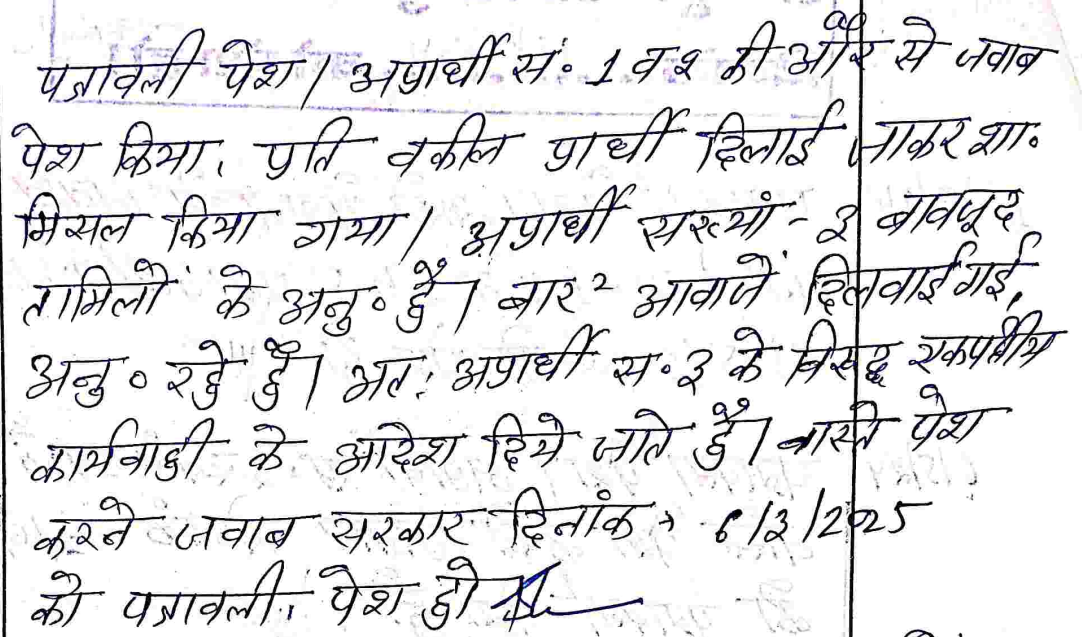 पत्रावली पेश। अप्रार्थी सं. 1 व 2 की और से जवाब
पेश किया, प्रति वकील प्रार्थी दिलाई जाकर शा.
मिसल किया गया। अप्रार्थी सख्यां - 3 बावजूद
तामिलों के अनु॰ हैं। बार २ आवाजें दिलवाई गई,
अनु॰ रहे हैं। अतः अप्रार्थी स. 3 के विरुद्ध एकपक्षीय
कार्यवाही के आदेश दिये जाते हैं। वास्ते पेश
करने जवाब सरकार दिनांक 6/3/2025
को पत्रावली पेश हो